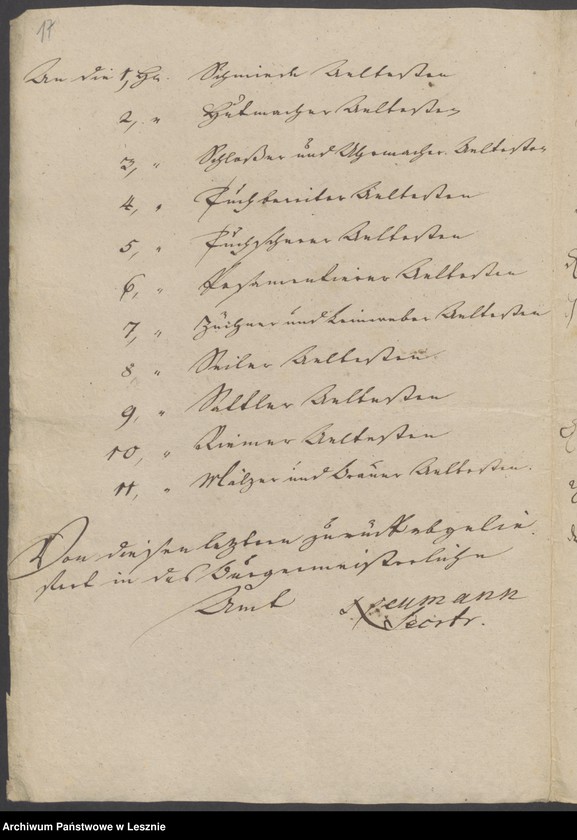 17
An die 1, Hn. Schmiede Aeltesten
2, " Hutmacher Aeltesten
3, " Schloßer und Uhrmacher Aeltesten
4, " Tuchbereiter Aeltesten
5, " Tuchscheer Aeltesten
6, " Posamentierer Aeltesten
7, " Züchner und Leinweber Aeltesten
8 " Seiler Aeltesten
9, " Sattler Aeltesten
10, " Riemer Aeltesten
11, " Mälzer und Bräuer Aeltesten.
Von diesen letztern zurück abgelie-
fert in das Bürgermeisterliche
Amt Neumann
Secrtr.
Archiwum Państwowe w Lesznie